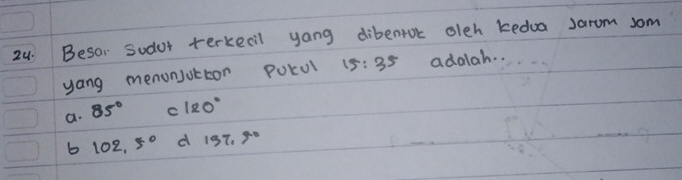 24. Besar sudut terkecil yang dibentuk oleh kedua Jarum Jam
yang menunjukkan Pukul 15:35 adalah...
a. 85° c 120°
b 102,5° d 137,5°